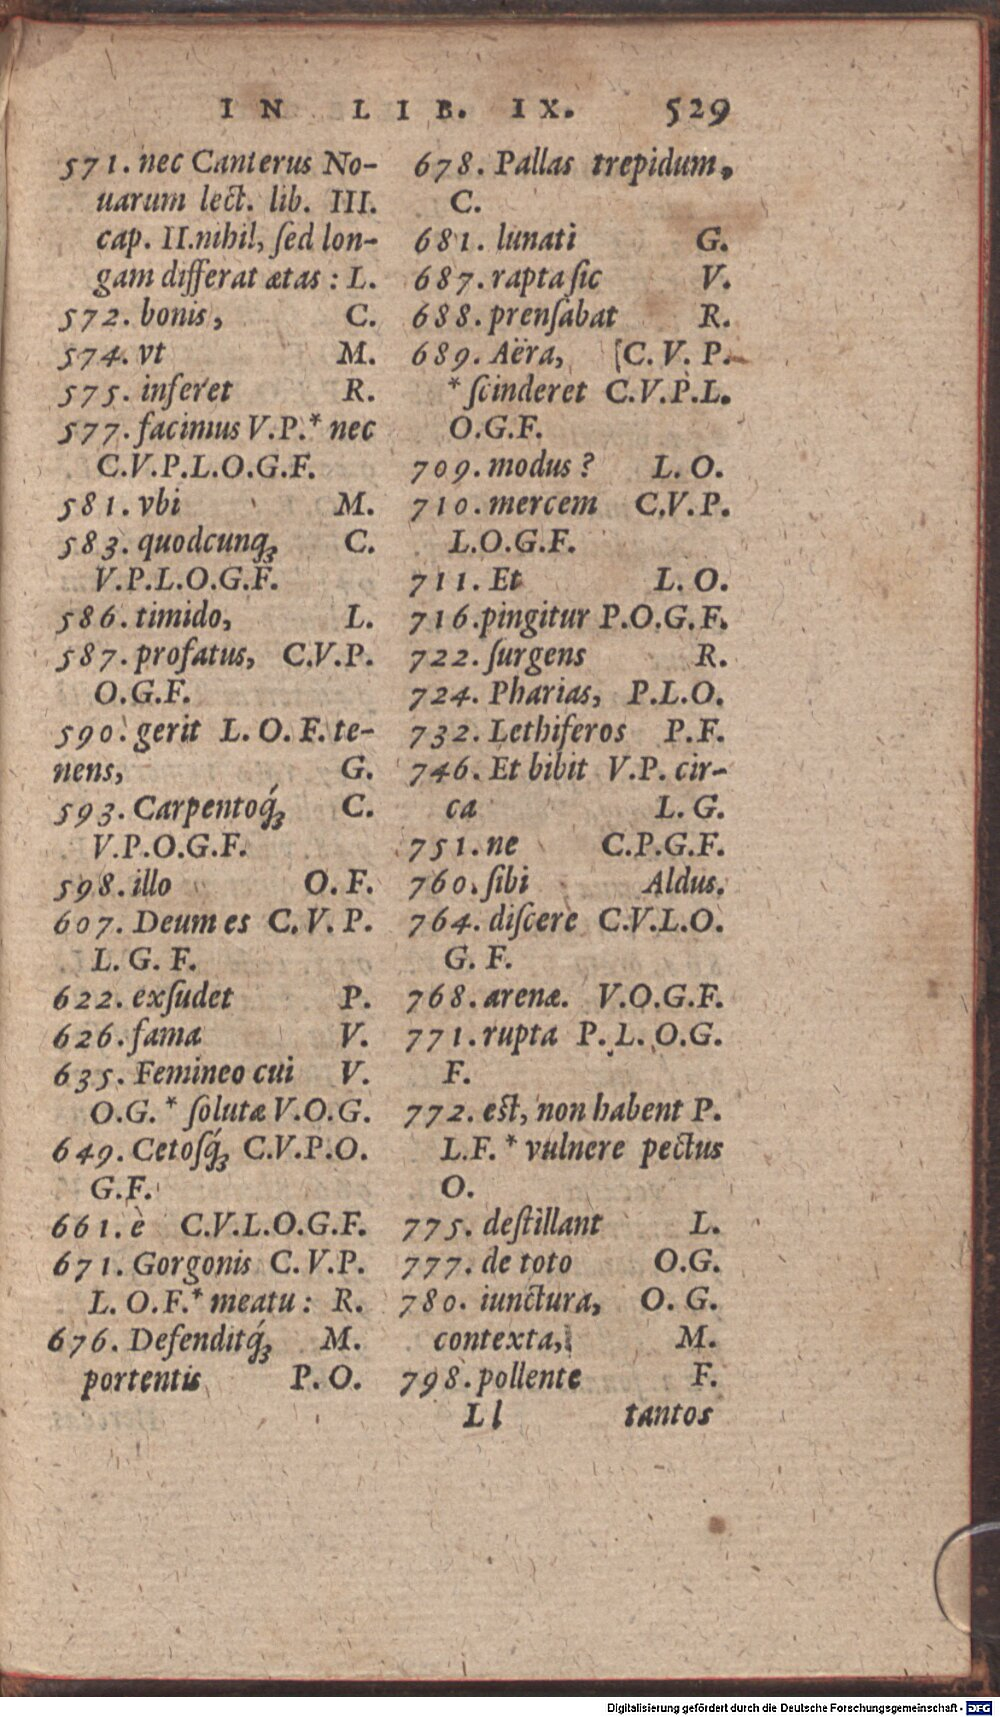 IN LIB. IX. 529
571. nec Canterus No-
uarum lect. lib. III.
cap. II. nihil, ſed lon-
gam differat ætas : L.
572. bonis, C.
574. vt M.
575. inferet R.
577. facimus V.P.* nec
C.V.P.L.O.G.F.
581. vbi M.
583. quodcunqꝫ C.
V.P.L.O.G.F.
586. timido, L.
587. profatus, C.V.P.
O.G.F.
590. gerit L. O. F. te-
nens, G.
593. Carpentoq́ꝫ C.
V.P.O.G.F.
598. illo O. F.
607. Deum es C. V. P.
L. G. F.
622. exſudet P.
626. fama V.
635. Femineo cui V.
O.G. * ſolutæ V.O.G.
649. Cetoſq́ꝫ C.V.P.O.
G.F.
661. è C.V.L.O.G.F.
671. Gorgonis C. V. P.
L. O.F.* meatu : R.
676. Defenditq́ꝫ M.
portentis P. O.
678. Pallas trepidum,
C.
681. lunati G.
687. rapta ſic V.
688. prenſabat R.
689. Aëra, [C. V. P.
* ſcinderet C.V.P.L.
O.G.F.
709. modus ? L. O.
710. mercem C.V.P.
L.O.G.F.
711. Et L. O.
716. pingitur P.O.G.F.
722. ſurgens R.
724. Pharias, P.L.O.
732. Lethiferos P.F.
746. Et bibit V.P. cir-
ca L. G.
751. ne C.P.G.F.
760. ſibi Aldus.
764. diſcere C.V.L.O.
G. F.
768. arenæ. V.O.G.F.
771. rupta P. L. O.G.
F.
772. eſt, non habent P.
L.F. * vulnere pectus
O.
775. deſtillant L.
777. de toto O.G.
780. iunctura, O. G.
contexta, M.
798. pollente F.
Ll tantos
Digitalisierung gefördert durch die Deutsche Forschungsgemeinschaft - DFG